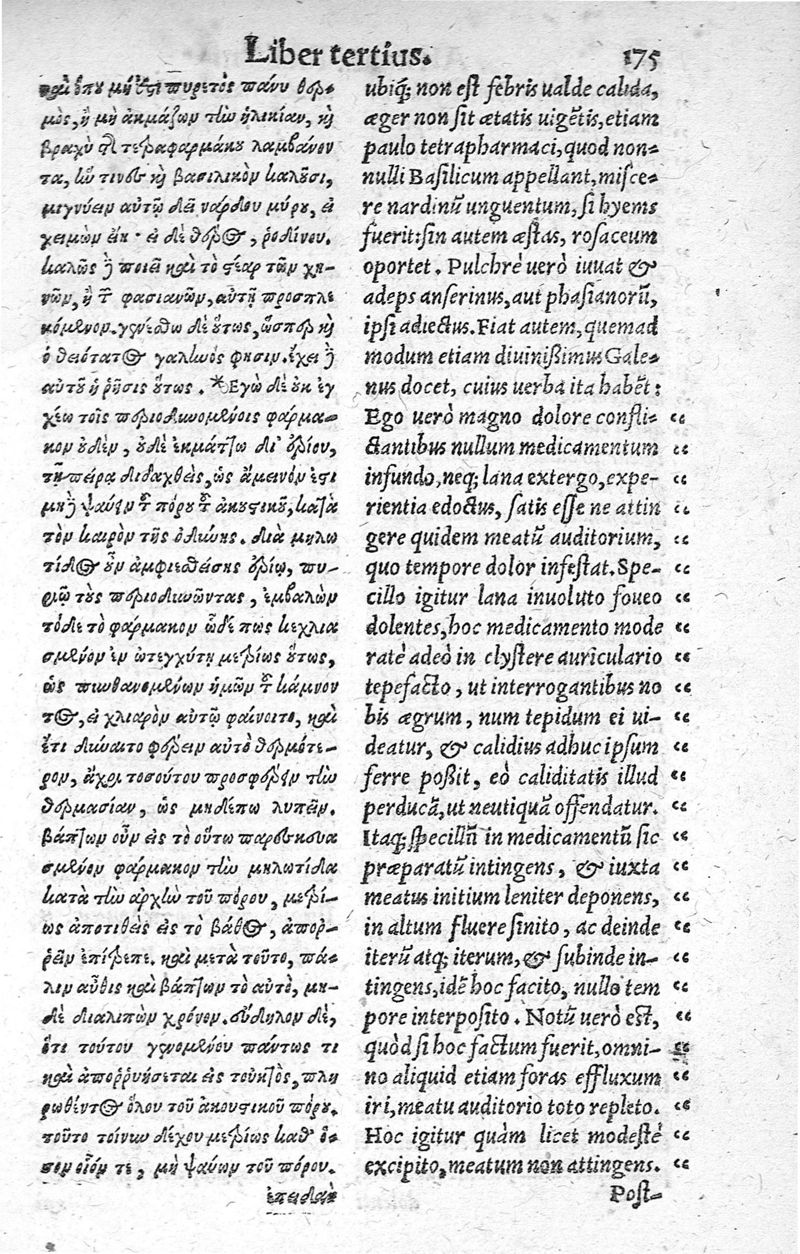 Liber tertius. 175
καὶ ὅπου μή ἐστι πυρετὸς πάνυ θερ-
μὸς, ἢ μὴ ἀκμάζων τὴν ἡλικίαν, καὶ
βραχὺ τι τετραφαρμάκου λαμβάνον
τα, ὃν τινες καὶ βασιλικὸν καλοῦσι,
μιγνύειν αὐτῷ δεῖ νάρδου μύρου, εἰ
χειμὼν εἴη· εἰ δὲ θέρος, ῥοδίνου.
καλῶς δὲ ποιεῖ καὶ τὸ στέαρ τῶν χη-
νῶν, ἢ τῶν φασιανῶν, αὐτῇ προσπλε
κόμενον. γινέσθω δὲ οὕτως, ὥσπερ καὶ
ὁ θειότατος γαληνὸς φησιν. ἔχει δὲ
αὐτοῦ ἡ ῥῆσις οὕτως. *Ἐγὼ δὲ οὐκ ἐγ
χέω τοῖς περιοδυνωμένοις φάρμα-
κον οὐδὲν, οὐδὲ ἐκμάττω δι' ἐρίου,
τῇ πείρᾳ διδαχθεὶς, ὡς ἄμεινόν ἐστι
μὴ δὲ ψαύειν τοῦ πόρου τοῦ ἀκουστικοῦ, κατὰ
τὸν καιρὸν τῆς ὀδύνης. διὰ μηλω
τίδος οὖν ἀμφιεσθείσης ἐρίῳ, πυ-
ριῶ τοὺς περιοδυνῶντας, ἐμβαλὼν
τόδε τὸ φάρμακον ὧδέ πως κεχλια
σμένον ἐν ὠτεγχύτῃ μετρίως οὕτως,
ὡς πυνθανομένων ἡμῶν τοῦ κάμνον
τος, εἰ χλιαρὸν αὐτῷ φαίνοιτο, καὶ
ἔτι δύναιτο φέρειν αὐτὸ θερμότε-
ρον, ἄχρι τοσούτου προσφέρειν τὴν
θερμασίαν, ὡς μηδέπω λυπεῖν.
βάπτων οὖν εἰς τὸ οὕτω παρεσκευα
σμένον φάρμακον τὴν μηλωτίδα
κατὰ τὴν ἀρχὴν τοῦ πόρου, μετρί-
ως ἀποτιθεὶς εἰς τὸ βάθος, ἀπορ-
ῥεῖν ἐπίτρεπε. καὶ μετὰ τοῦτο, πά-
λιν αὖθις καὶ βάπτων τὸ αὐτὸ, μη-
δὲ διαλιπὼν χρόνον. εὔδηλον δὲ,
ὅτι τούτου γινομένου πάντως τι
καὶ ἀποῤῥυήσεται εἰς τοὐκτὸς, πλη
ρωθέντος ὅλου τοῦ ἀκουστικοῦ πόρου.
τοῦτο τοίνυν δέχου μετρίως καθ' ὅ-
σον οἷόν τε, μὴ ψαύων τοῦ πόρου.
ἐπειδὰν
ubiq; non est febris ualde calida,
æger non sit ætatis uigẽtis, etiam
paulo tetrapharmaci, quod non-
nulli Basilicum appellant, misce-
re nardinũ unguentum, si hyems
fuerit: sin autem æstas, rosaceum
oportet. Pulchrè uerò iuuat &
adeps anserinus, aut phasianorũ,
ipsi adiectus. Fiat autem, quemad
modum etiam diuinißimus Gale-
nus docet, cuius uerba ita habẽt:
Ego uerò magno dolore confli- “
ctantibus nullum medicamentum “
infundo, neq; lana extergo, expe- “
rientia edoctus, satis esse ne attin “
gere quidem meatũ auditorium, “
quo tempore dolor infestat. Spe- “
cillo igitur lana inuoluto foueo “
dolentes, hoc medicamento mode “
ratè adeò in clystere auriculario “
tepefacto, ut interrogantibus no “
bis ægrum, num tepidum ei ui- “
deatur, & calidius adhuc ipsum “
ferre poßit, eò caliditatis illud “
perducã, ut neutiquã offendatur. “
Itaq; specillũ in medicamentũ sic “
præparatũ intingens, & iuxta “
meatus initium leniter deponens, “
in altum fluere sinito, ac deinde “
iterũ atq; iterum, & subinde in- “
tingens, idẽ hoc facito, nullo tem “
pore interposito. Notũ uerò est, “
quòd si hoc factum fuerit, omni- “
no aliquid etiam foras effluxum “
iri, meatu auditorio toto repleto. “
Hoc igitur quàm licet modestè “
excipito, meatum non attingens. “
Post-